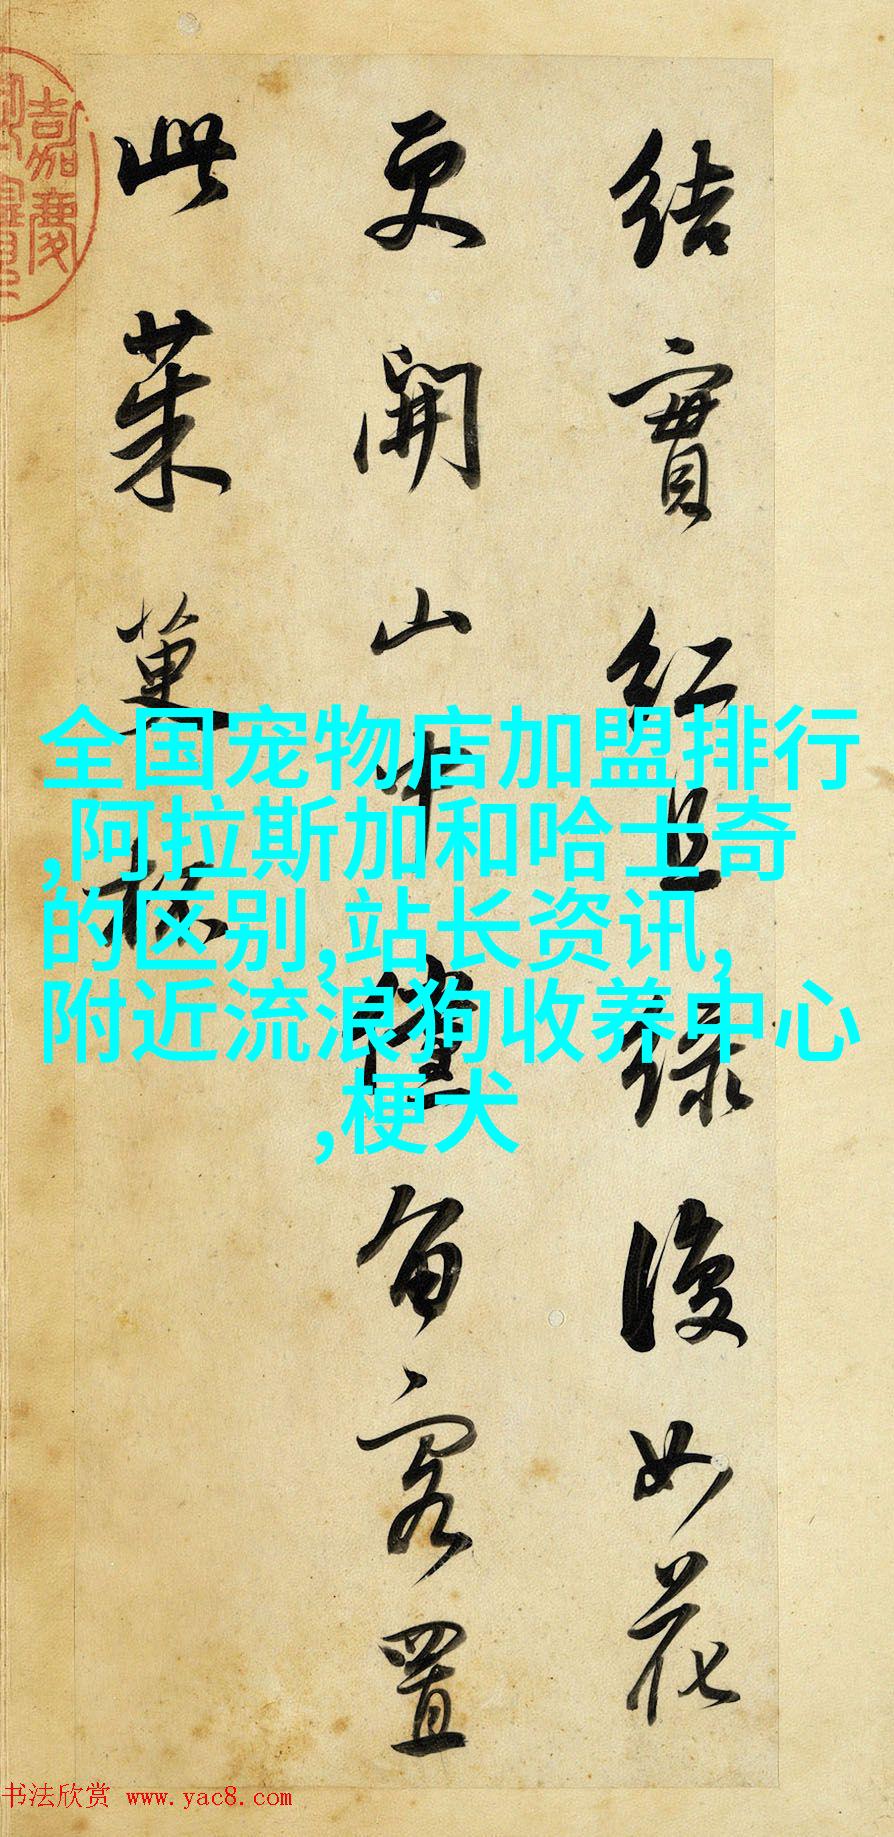 結實紅且綠復如花
更開山中儻留客置
此茱萸杯
嘉慶
全国宠物店加盟排行
,阿拉斯加和哈士奇
的区别,站长资讯,
附近流浪狗收养中心
,梗犬
书法欣赏 www.yac8.com